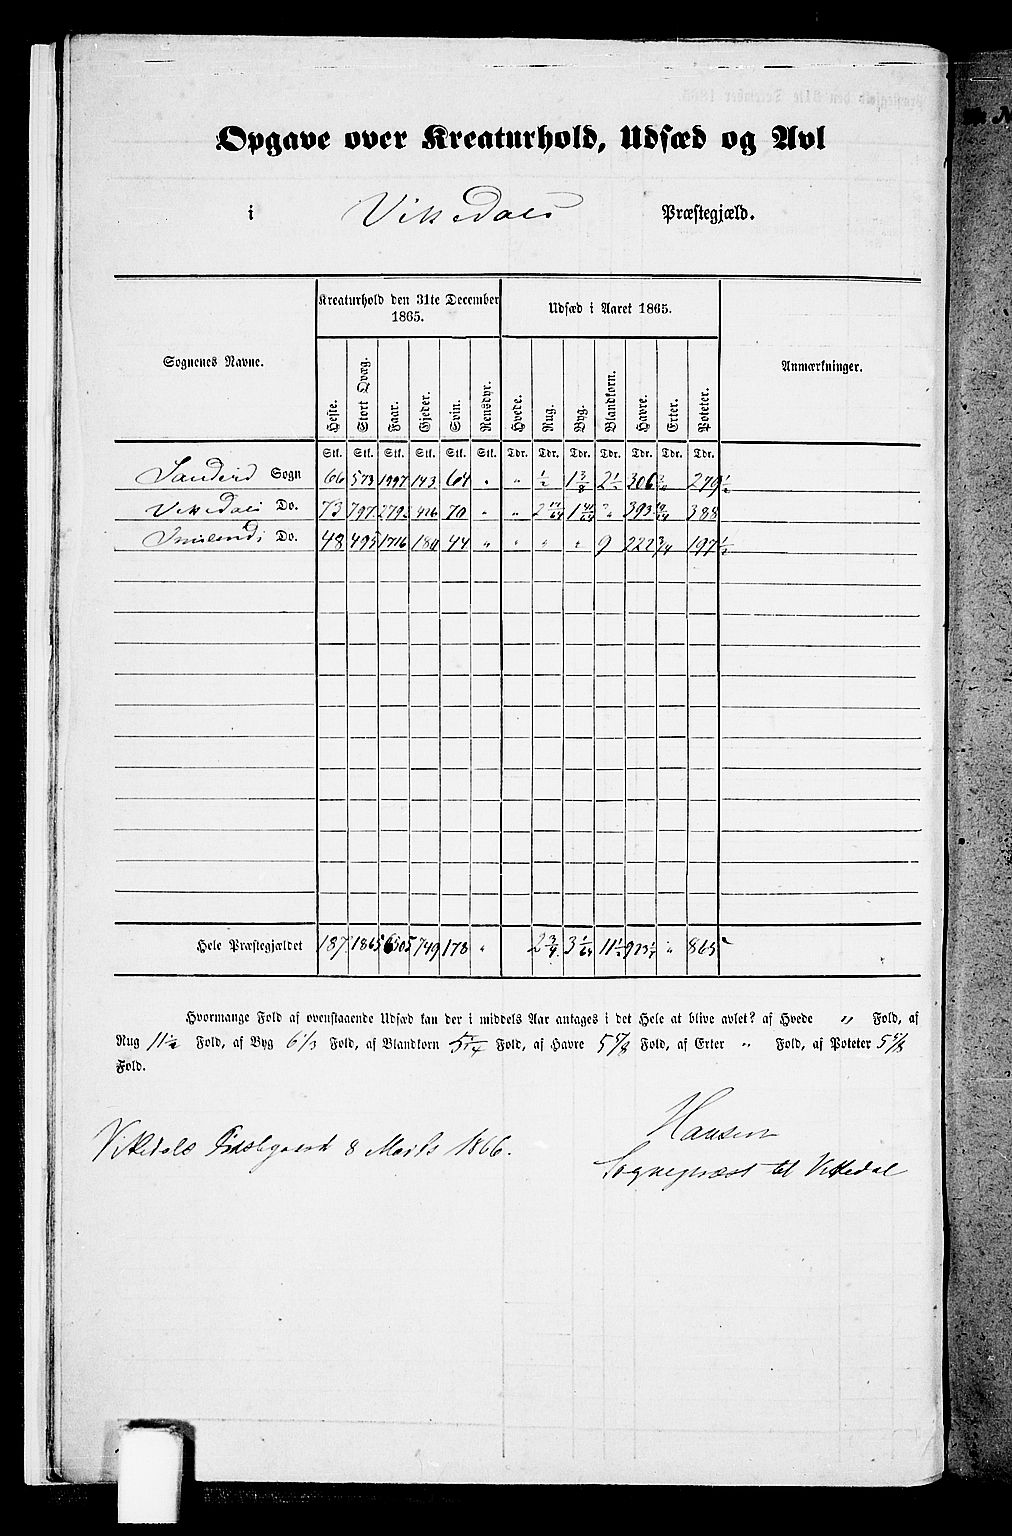 Opgave over Kreaturhold, Udsæd og Avl
i Vikedals Præstegjæld.
Sognenes Navne.
Kreaturhold den 31te December 1865.
Udsæd i Aaret 1865.
Anmærkninger.
Heste. Stort Qvæg. Faar. Gjeder. Svin. Rensdyr. Hvede. Rug. Byg. Blandkorn. Havre. Erter. Poteter.
Stk. Stk. Stk. Stk. Stk. Stk. Tdr. Tdr. Tdr. Tdr. Tdr. Tdr. Tdr.
Sandeid Sogn 66 573 1997 143 64 " " 1/2 1 3/8 2 1/2 306 279 1/2
Vikedals Do. 73 797 2792 426 70 " " 2 1 41/64 " 393 388
Imslands Do. 48 495 1716 180 44 " " " " 9 222 3/4 197 1/2
Hele Præstegjældet 187 1865 6505 749 178 " 2 3/4 3 1/64 11 1/2 923 1/4 " 865
Hvormange Fold af ovenstaaende Udsæd kan der i middels Aar antages i det Hele at blive avlet? af Hvede " Fold, af
Rug 11 1/2 Fold, af Byg 6 1/3 Fold, af Blandkorn 5 1/4 Fold, af Havre 5 5/8 Fold, af Erter " Fold, af Poteter 5 5/8
Fold.
Hansen
Vikedals Præstegaard 8 Marts 1866.
Sognepræst til Vikedal